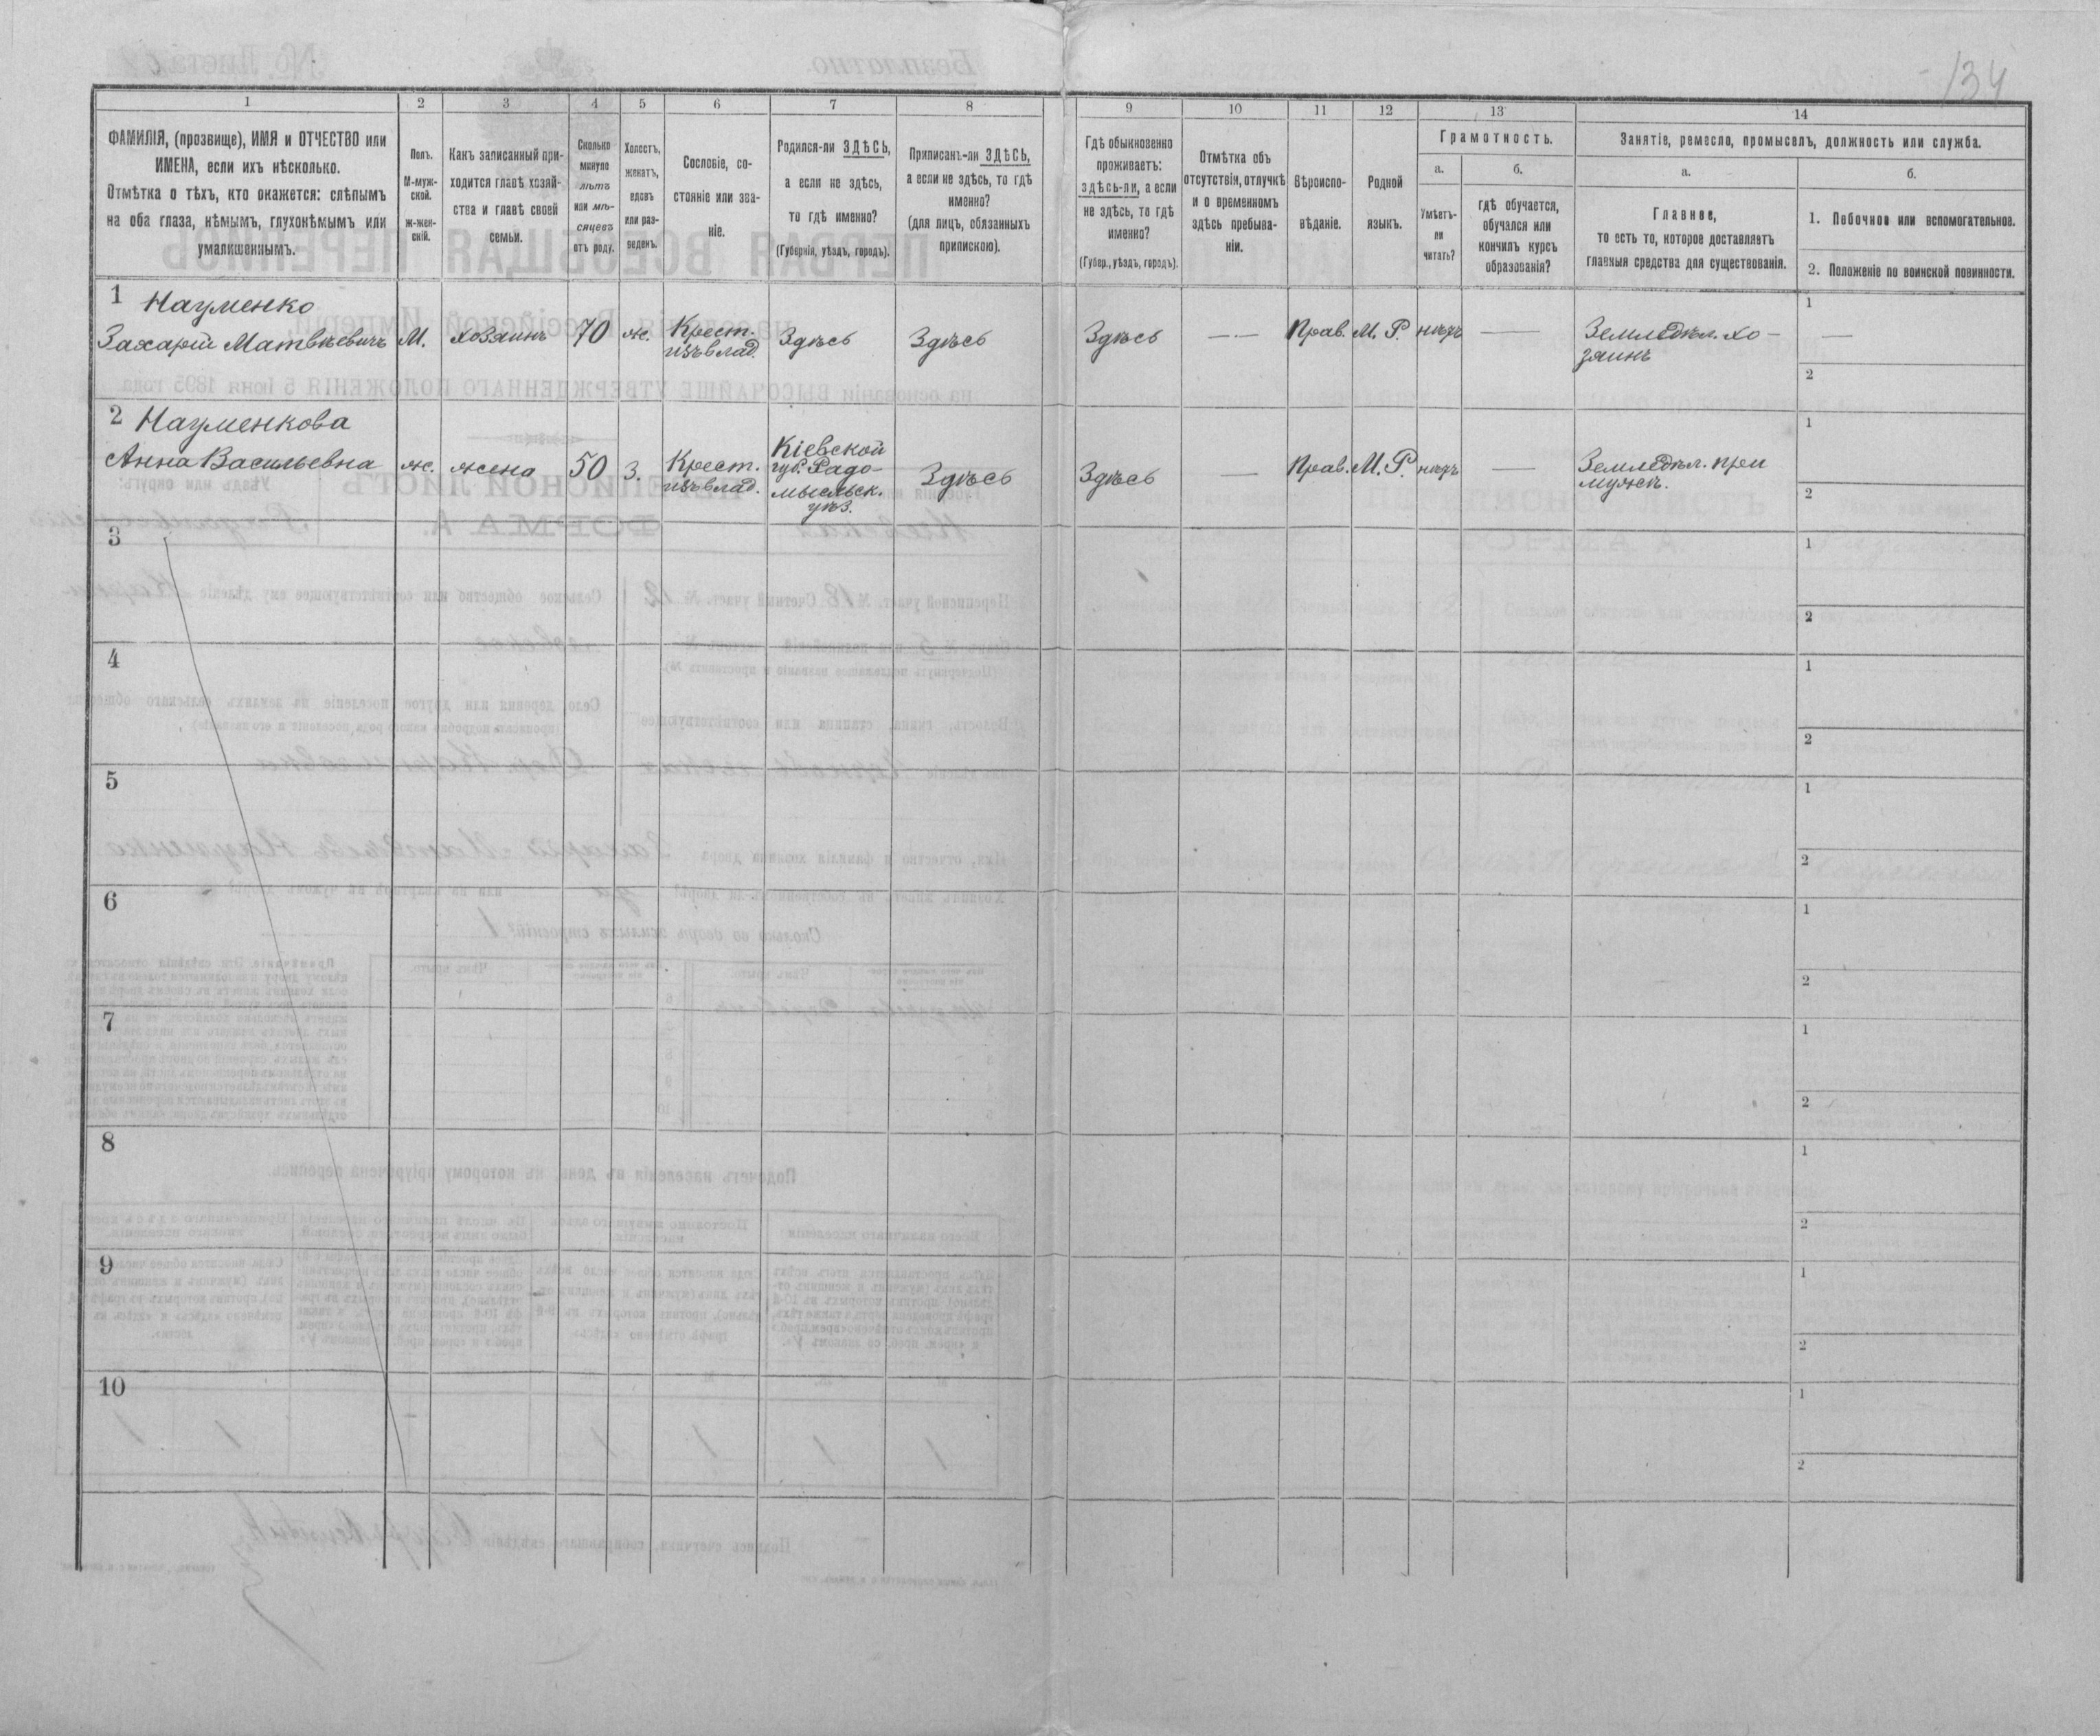 134
1
2
3
4
5
6
7
8
9
10
11
12
13
14
ФАМИЛІЯ, (прозвище), ИМЯ и ОТЧЕСТВО или
ИМЕНА, если ихъ нѣсколько.
Отмѣтка о тѣхъ, кто окажется: слѣпымъ
на оба глаза, нѣмымъ, глухонѣмымъ или
умалишеннымъ.
Полъ.
М-муж-
ской.
ж-жен-
скій.
Какъ записанный при-
ходится главѣ хозяй-
ства и главѣ своей
семьи.
Сколько
минуло
лѣтъ
или мѣ-
сяцевъ
отъ роду.
Холостъ,
женатъ,
вдовъ
или раз-
веденъ.
Сословіе, со-
стояніе или зва-
ніе.
Родился-ли ЗДѢСЬ,
а если не здѣсь,
то гдѣ именно?
(Губернія, уѣздъ, городъ).
Приписанъ-ли ЗДѢСЬ,
а если не здѣсь, то гдѣ
именно?
(для лицъ, обязанныхъ
припискою).
Гдѣ обыкновенно
проживаетъ:
здѣсь-ли, а если
не здѣсь, то гдѣ
именно?
(Губер., уѣздъ, городъ).
Отмѣтка объ
отсутствіи, отлучкѣ
и о временномъ
здѣсь пребыва-
ніи.
Вѣроиспо-
вѣданіе.
Родной
языкъ.
Грамотность.
а.
б.
Умѣетъ-
ли
читать?
гдѣ обучается,
обучался или
кончилъ курсъ
образованія?
Занятіе, ремесло, промыселъ, должность или служба.
а.
б.
Главное,
то есть то, которое доставляетъ
главныя средства для существованія.
1. Побочное или вспомогательное.
2. Положеніе по воинской повинности.
1 Науменко
Захарій Матвѣевичъ М. хозяинъ 70 ж. Крест. изъ влад. Здѣсь Здѣсь Здѣсь — Прав. М. Р. нѣтъ — Земледѣл. хо-
зяинъ
1 —
2
2 Науменкова
Анна Васильевна ж. жена 50 З. Крест. изъ влад. Кіевской
губ. Радо-
мысльск.
уѣз.
Здѣсь Здѣсь — Прав. М. Р. нѣтъ — Земледѣл. при
мужѣ.
1
2
3
1
2
4
1
2
5
1
2
6
1
2
7
1
2
8
1
2
9
1
2
10
1
2